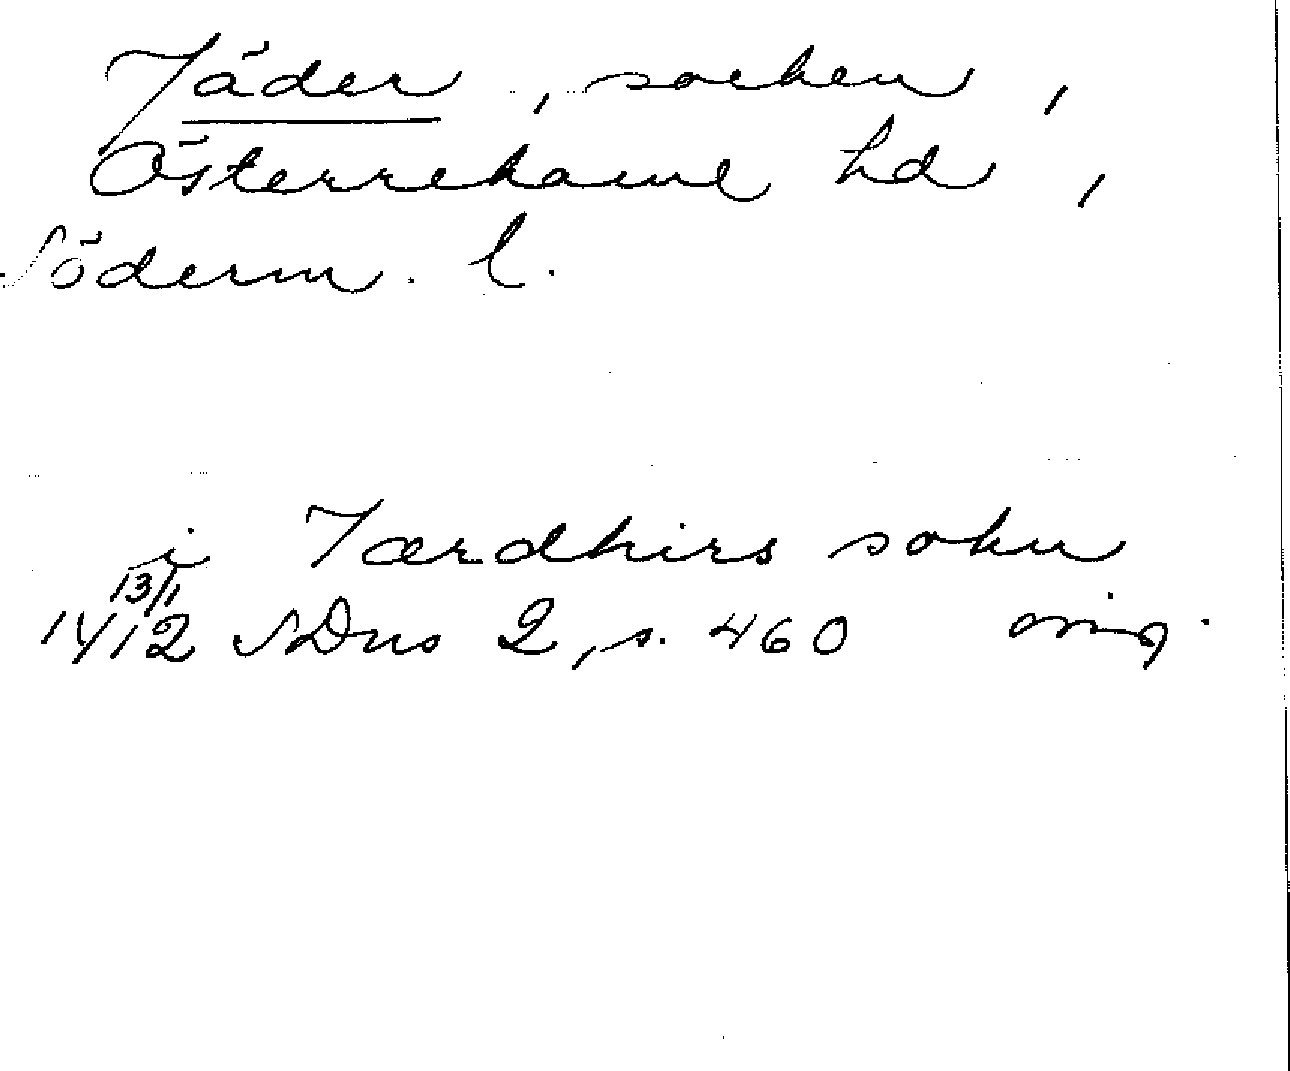 Jäder, socken,
Österrekarne hd,
Söderm. l.
i Jærdhirs sokn
13/1
1412 SDns 2, s. 460 orig.